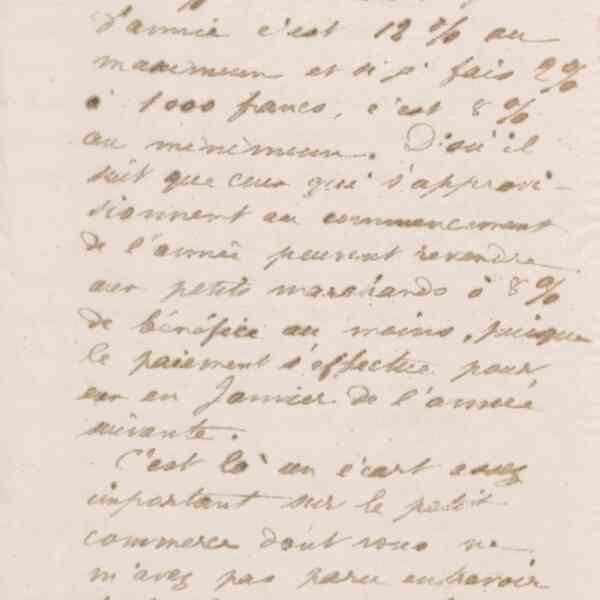 d'année c'est 12 % au
maximum et si je fais 2%
à 1000 francs, c'est 8 %
au minimum. D'où il
suit que ceux qui s'approvi-
sionnent au commencement
de l'année peuvent revendre
aux petits marchands à 8 %
de bénéfice au moins, puisque
le paiement s'effectue pour
eux en Janvier de l'année
suivante.
C'est là un écart assez
important sur le petit
commerce dont vous ne
m'avez pas paru entrevoir